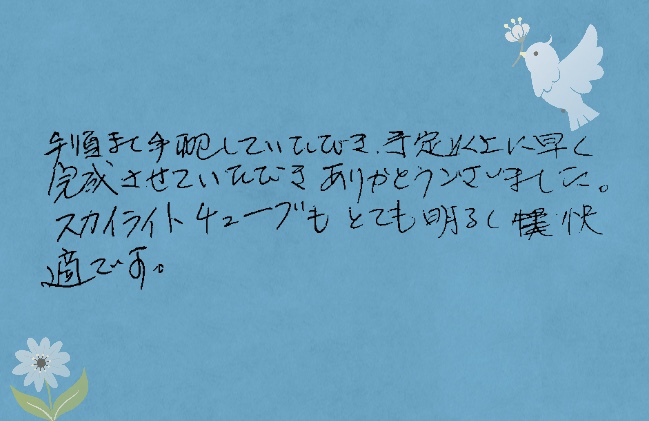 手順まで手配していただき、予定以上に早く
完成させていただきありがとうございました。
スカイライトチューブもとても明るく快
適です。